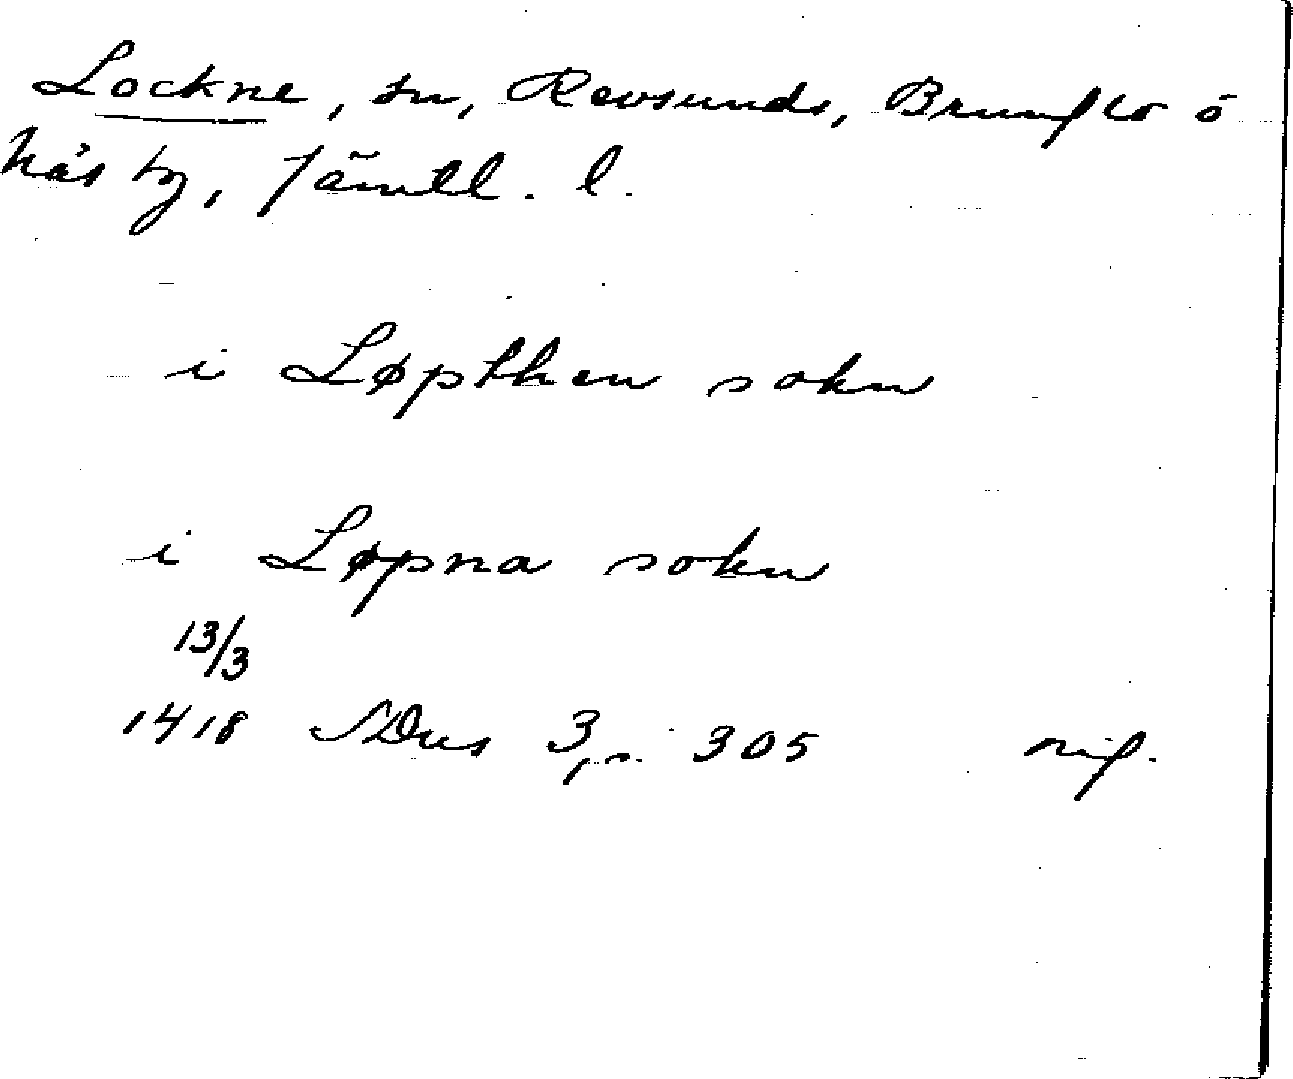 Lockne, sn, Revsunds, Brunflo o
Näs tg, Jämtl. l.
i Løpthen sokn
i Løpna sokn
13/3
1418 SDns 3, s. 305